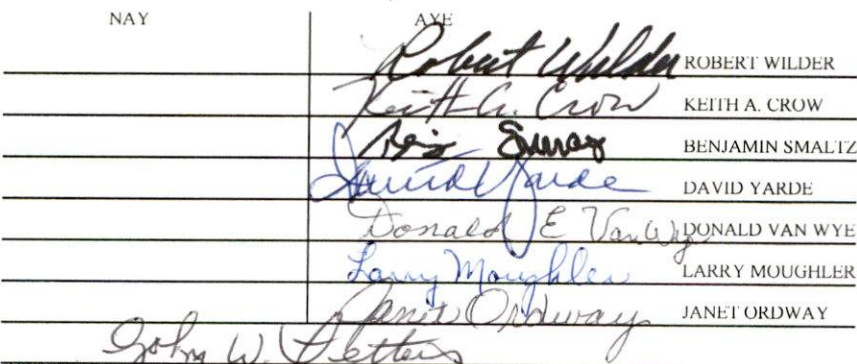 NAY AYE
Robert Wilder ROBERT WILDER
Keith A. Crow KEITH A. CROW
BENJAMIN SMALTZ
David Yarde DAVID YARDE
Donald E Van Wye DONALD VAN WYE
Larry Moughler LARRY MOUGHLER
Janet Ordway JANET ORDWAY
John W. Fetters